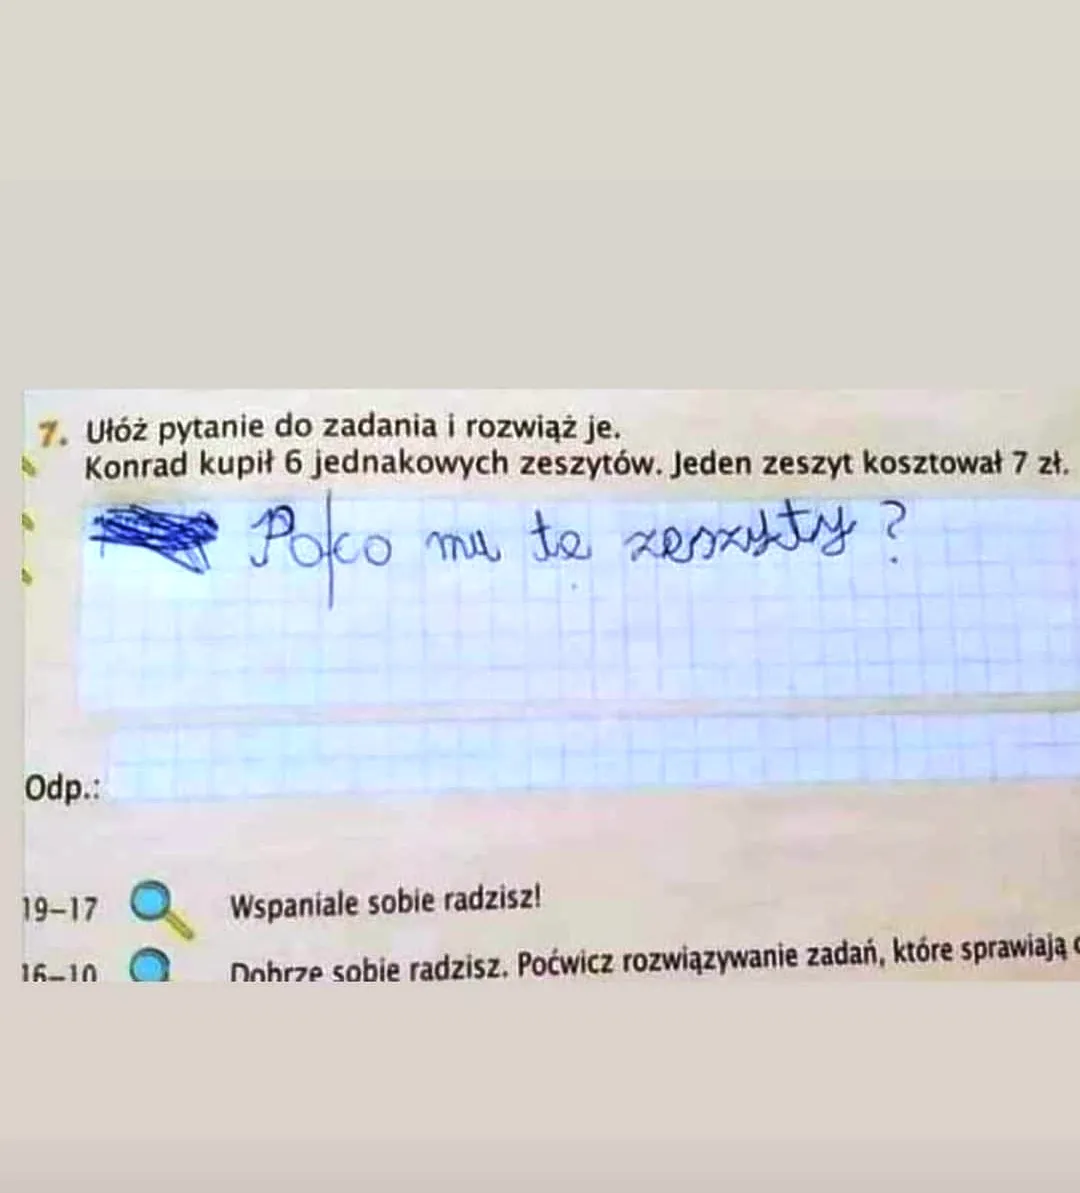 7. Ułóż pytanie do zadania i rozwiąż je.
Konrad kupił 6 jednakowych zeszytów. Jeden zeszyt kosztował 7 zł.
Po|co mu te zeszyty?
Odp.:
19–17 Wspaniale sobie radzisz!
16–10 Dobrze sobie radzisz. Poćwicz rozwiązywanie zadań, które sprawiają